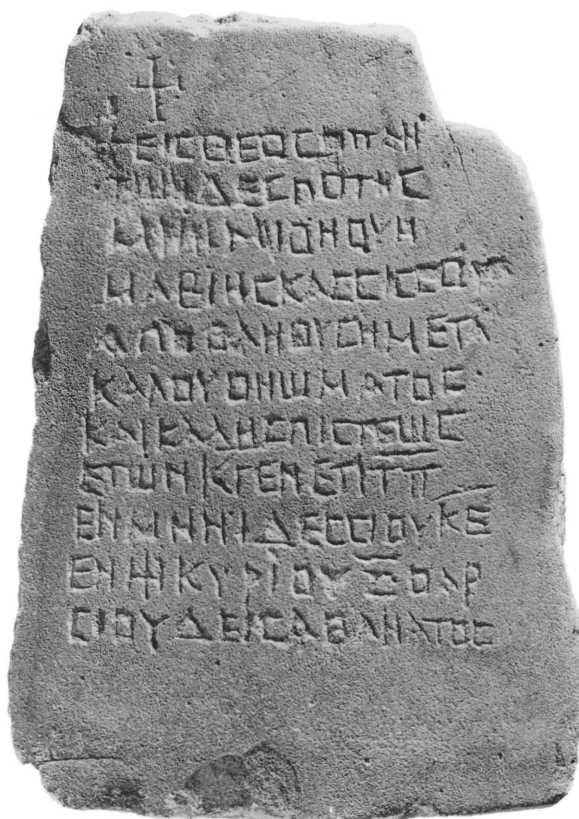 ΕΙϹΘΕΟϹΟΠΑΝ
ΤΩΝΔΕϹΠΟΤΗϹ
ΜΝΗΜΙΟΝΟΥΝ
ΑΠΟΘΑΝΟΥϹΗΜΕΤΑ
ΚΑΛΟΥΟΝΩΜΑΤΟϹ
ΚΑΙΚΑΛΗϹΠΙϹΤΕΩϹ
ΕΤΩΝΚΓΕΝΕΤΙΤΠ
ΕΝΜΗΝΙΔΕϹϹΙΟΥΚΕ
ΕΝΗΜΚΥΡΙΟΥΞΘΑΡ
ϹΙΟΥΔΕΙϹΑΘΑΝΑΤΟϹ